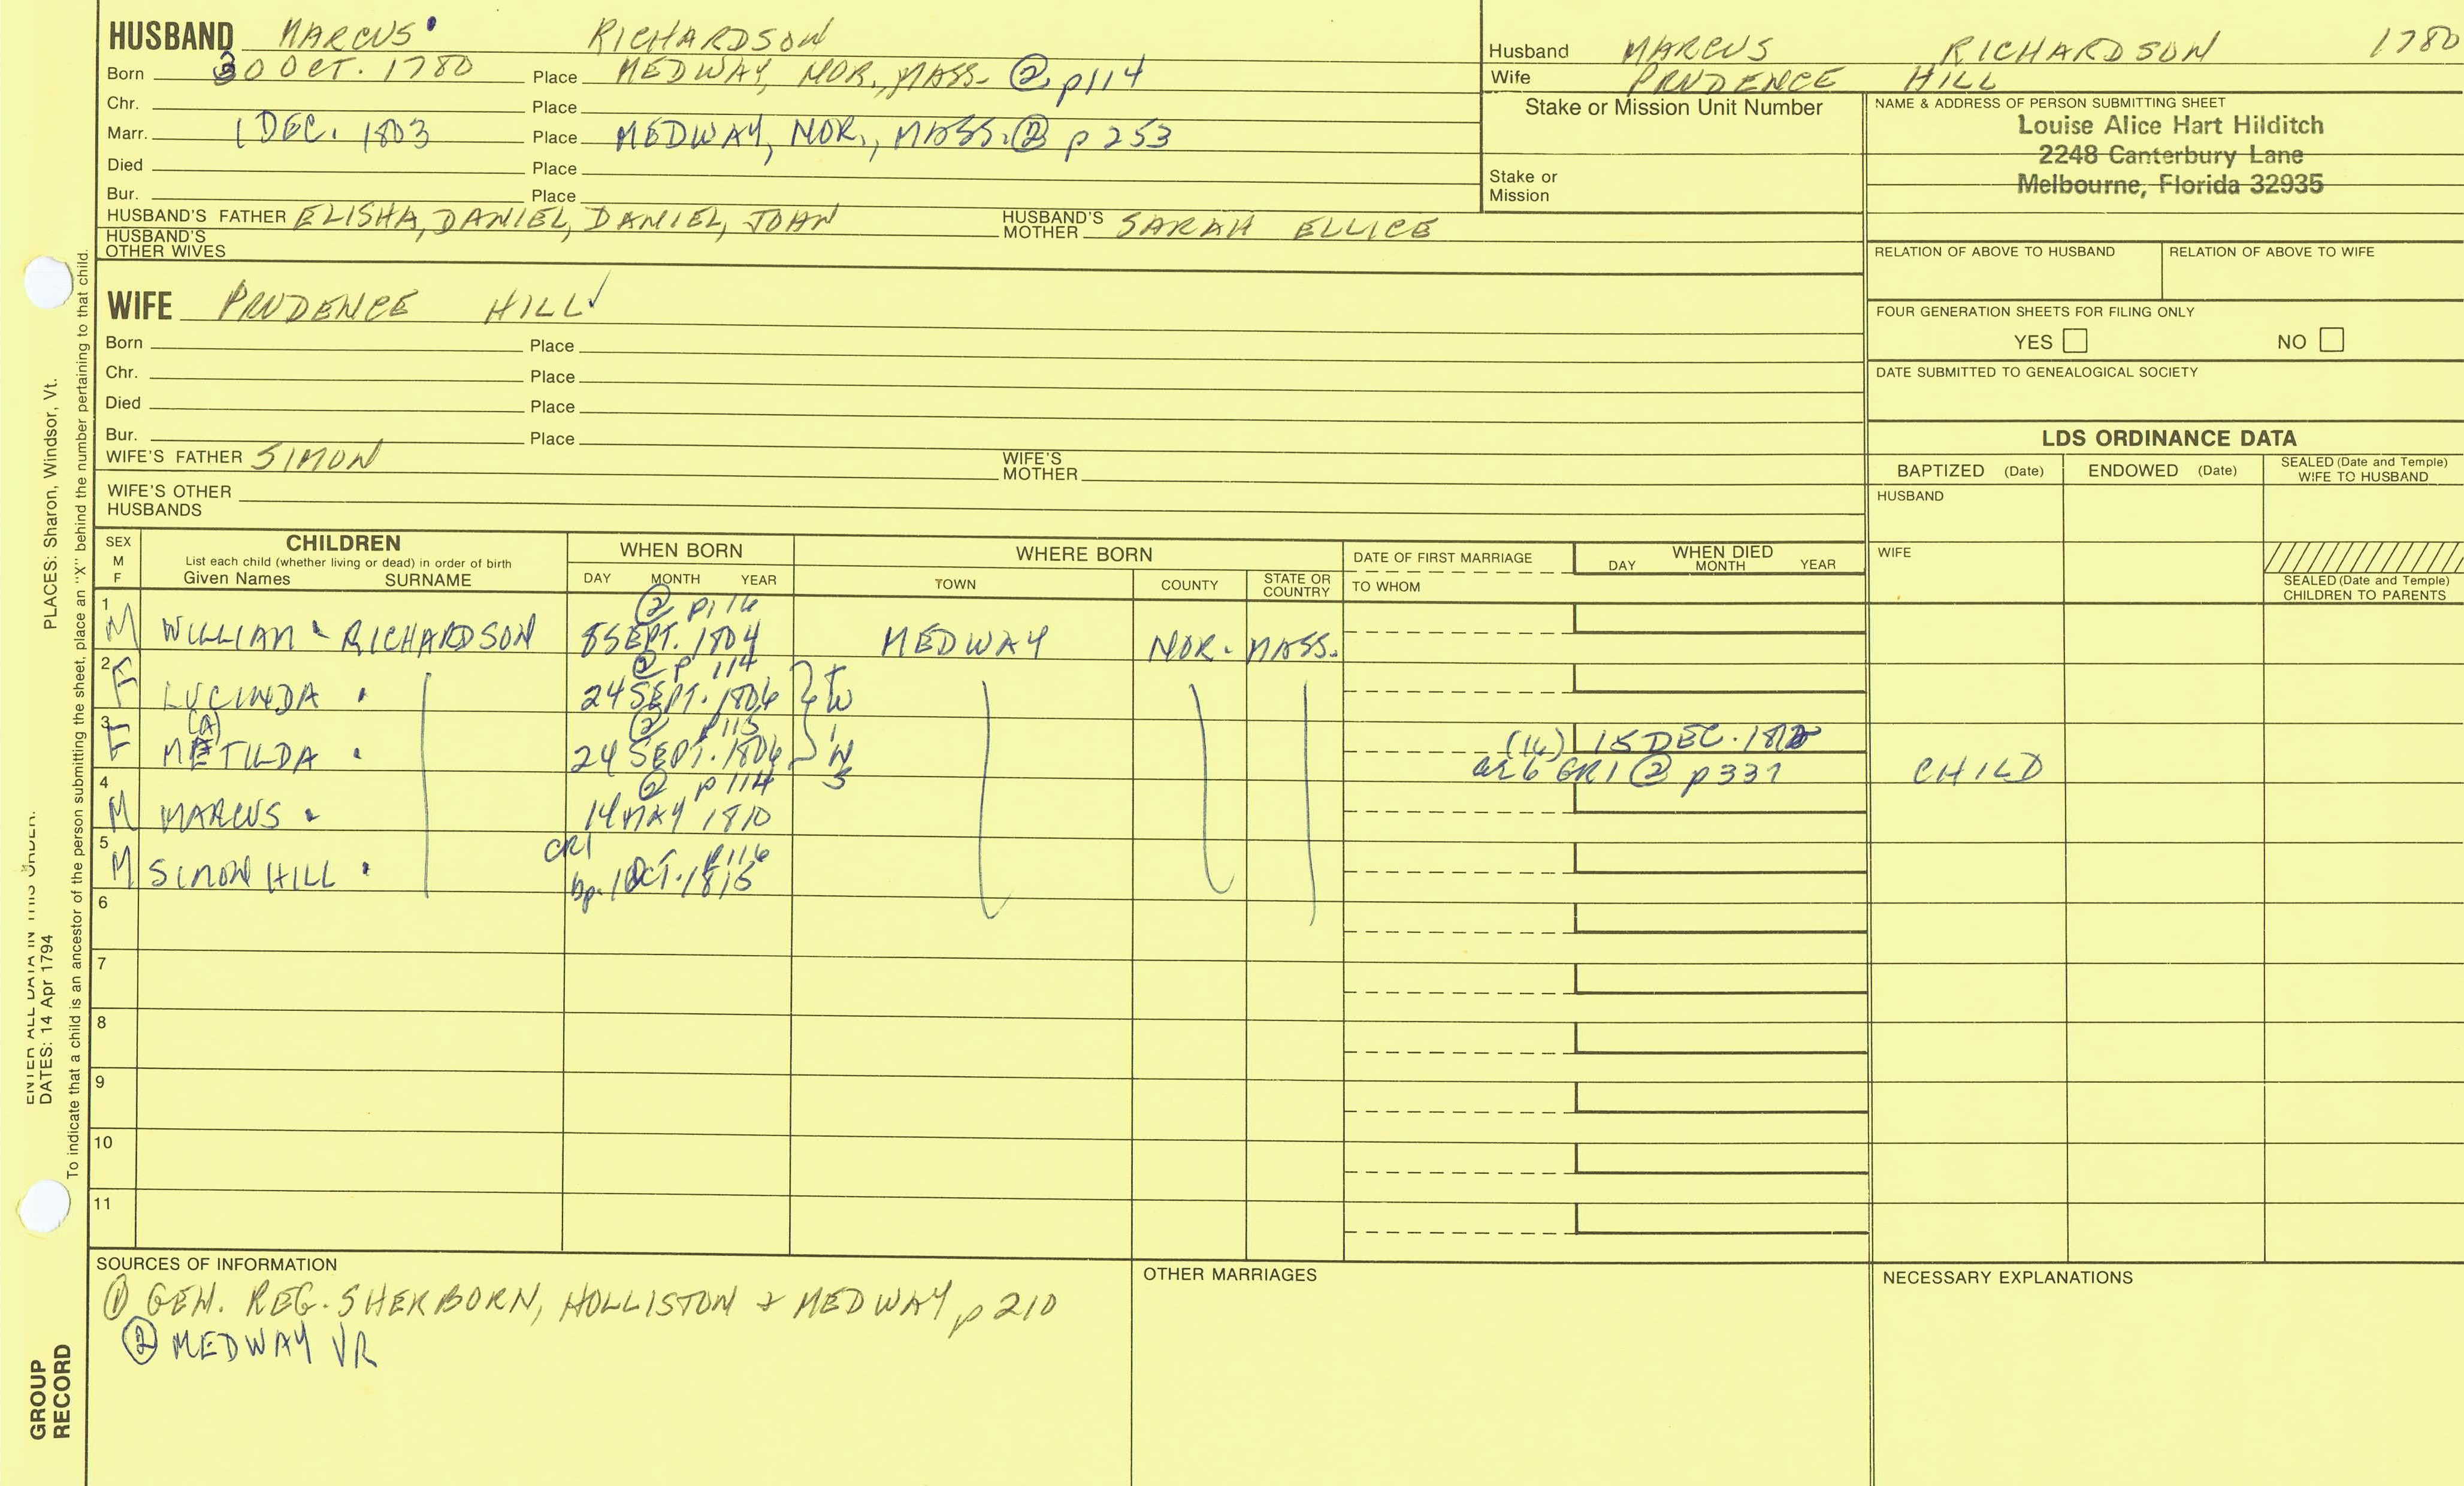 HUSBAND MARCUS RICHARDSON
Born 30 OCT. 1780 Place MEDWAY, NOR., MASS. ② p114
Chr. Place
Marr. 1 DEC. 1803 Place MEDWAY, NOR., MASS. ② p 253
Died Place
Bur. Place
HUSBAND'S FATHER ELISHA, DANIEL, DANIEL, JOHN HUSBAND'S MOTHER SARAH ELLICE
HUSBAND'S OTHER WIVES
Husband MARCUS RICHARDSON 1780
Wife PRUDENCE HILL
Stake or Mission Unit Number
Stake or Mission
NAME & ADDRESS OF PERSON SUBMITTING SHEET
Louise Alice Hart Hilditch
2248 Canterbury Lane
Melbourne, Florida 32935
RELATION OF ABOVE TO HUSBAND RELATION OF ABOVE TO WIFE
FOUR GENERATION SHEETS FOR FILING ONLY
YES NO
DATE SUBMITTED TO GENEALOGICAL SOCIETY
WIFE PRUDENCE HILL ✓
Born Place
Chr. Place
Died Place
Bur. Place
WIFE'S FATHER SIMON WIFE'S MOTHER
WIFE'S OTHER HUSBANDS
LDS ORDINANCE DATA
BAPTIZED (Date) ENDOWED (Date) SEALED (Date and Temple) WIFE TO HUSBAND
HUSBAND
WIFE
SEALED (Date and Temple) CHILDREN TO PARENTS
SEX M F
CHILDREN
List each child (whether living or dead) in order of birth
Given Names SURNAME
WHEN BORN
DAY MONTH YEAR
WHERE BORN
TOWN COUNTY STATE OR COUNTRY
DATE OF FIRST MARRIAGE
TO WHOM
WHEN DIED
DAY MONTH YEAR
② p116
1 M WILLIAM RICHARDSON 8 SEPT. 1804 MEDWAY NOR. MASS.
② p 114
2 F LUCINDA 24 SEPT. 1806 TW
② p115
(A)
3 F METILDA 24 SEPT. 1806 IN (16) 15 DEC. 1812
S ae 6 GR1 ② p337 CHILD
② p 114
4 M MARCUS 14 MAY 1810
CR1 p116
5 M SIMON HILL bp. 1 OCT. 1815
6
7
8
9
10
11
SOURCES OF INFORMATION
① GEN. REG. SHERBORN, HOLLISTON & MEDWAY p 210
② MEDWAY VR
OTHER MARRIAGES
NECESSARY EXPLANATIONS
PLACES: Sharon, Windsor, Vt.
To indicate that a child is an ancestor of the person submitting the sheet, place an "X" behind the number pertaining to that child.
ENTER ALL DATA IN THIS ORDER:
DATES: 14 Apr 1794
GROUP
RECORD